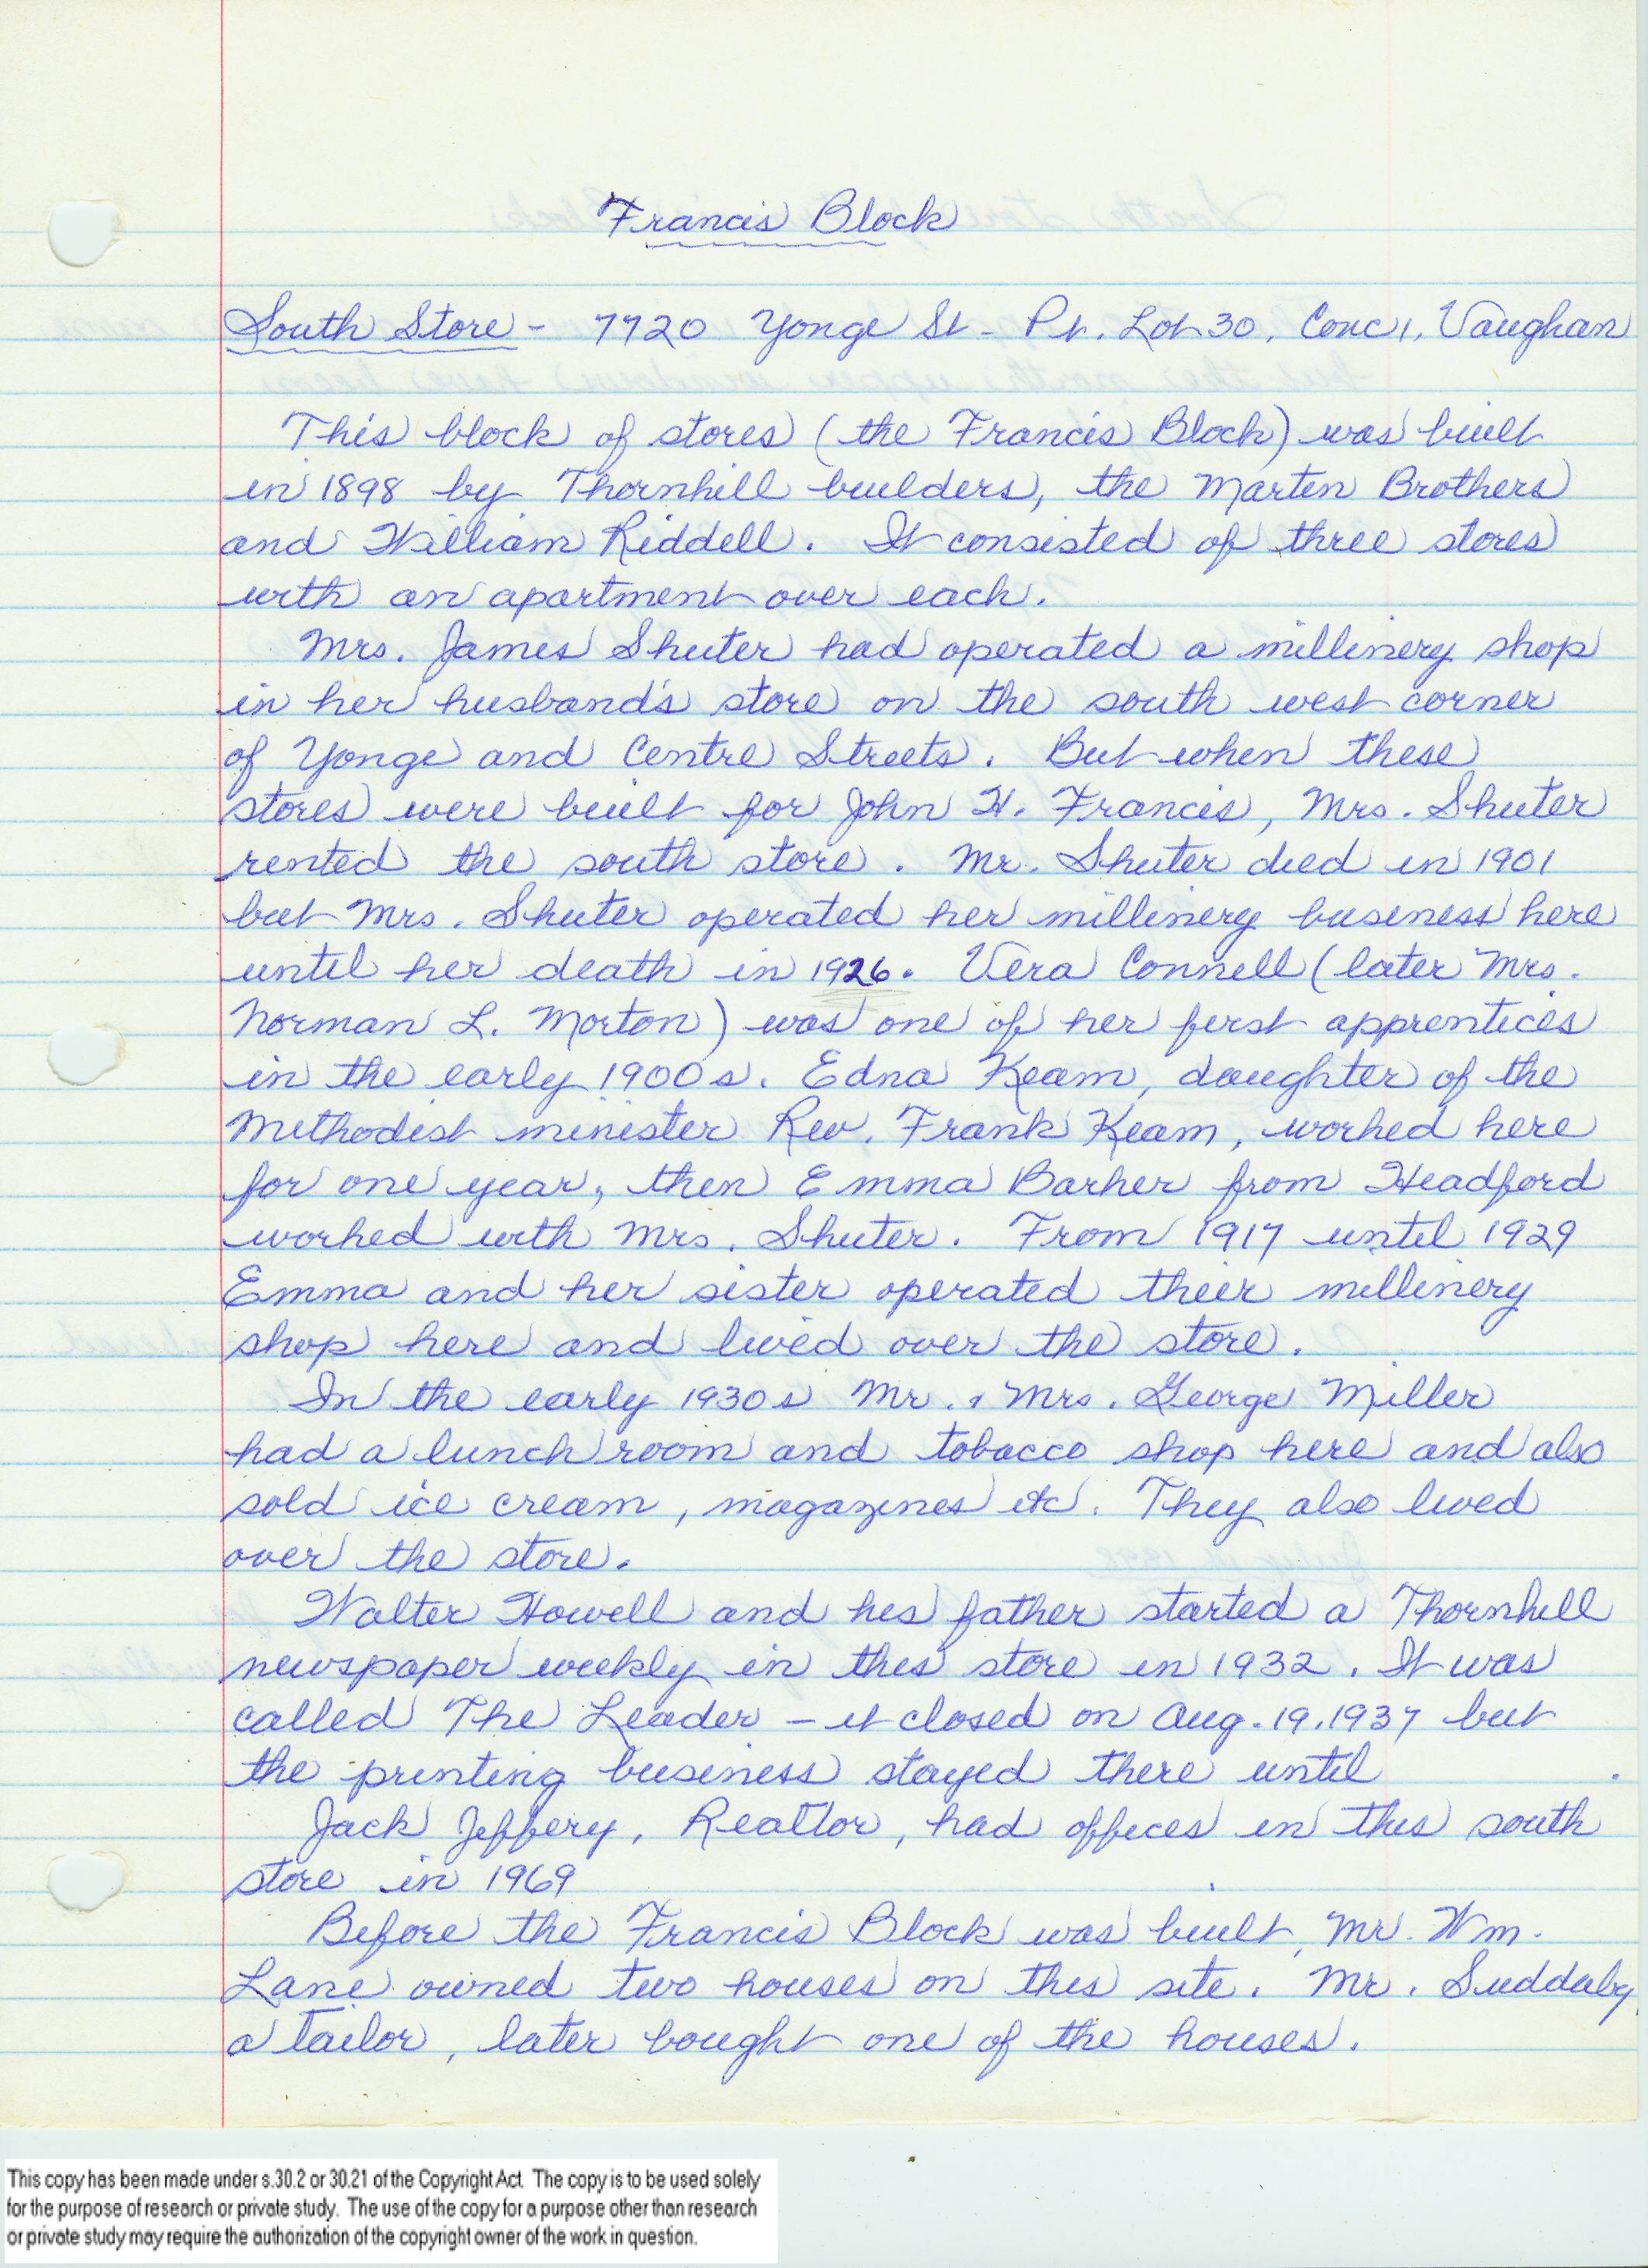 Francis Block
South Store - 7720 Yonge St - Pt. Lot 30, Conc 1, Vaughan
This block of stores (the Francis Block) was built
in 1898 by Thornhill builders, the Martin Brothers
and William Riddell. It consisted of three stores
with an apartment over each.
Mrs. James Shuter had operated a millinery shop
in her husband's store on the south west corner
of Yonge and Centre Streets. But when these
stores were built for John H. Francis, Mrs. Shuter
rented the south store. Mr. Shuter died in 1901
but Mrs. Shuter operated her millinery business here
until her death in 1926. Vera Connell (later Mrs.
Norman L. Morton) was one of her first apprentices
in the early 1900s. Edna Keam, daughter of the
Methodist minister Rev. Frank Keam, worked here
for one year, then Emma Barker from Headford
worked with Mrs. Shuter. From 1917 until 1929
Emma and her sister operated their millinery
shop here and lived over the store.
In the early 1930s Mr. & Mrs. George Miller
had a lunch room and tobacco shop here and also
sold ice cream, magazines etc. They also lived
over the store.
Walter Howell and his father started a Thornhill
newspaper weekly in this store in 1932. It was
called The Leader - it closed on Aug. 19, 1937 but
the printing business stayed there until
Jack Jeffery, Realtor, had offices in this south
store in 1969
Before the Francis Block was built, Mr. Wm.
Lane owned two houses on this site. Mr. Suddaby,
a tailor, later bought one of the houses.
This copy has been made under s.30.2 or 30.21 of the Copyright Act. The copy is to be used solely
for the purpose of research or private study. The use of the copy for a purpose other than research
or private study may require the authorization of the copyright owner of the work in question.